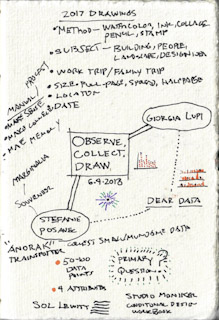 2017 DRAWINGS
• METHOD - WATERCOLOR, INK, COLLAGE
PENCIL, STAMP
• SUBJECT - BUILDING, PEOPLE,
LANDSCAPE, DESIGN IDEA
• WORK TRIP / FAMILY TRIP
• SIZE - FULL-PAGE, SPREAD, HALF PAGE
• LOCATION
• DATE
MAKE MEMORY
MARGINALIA
SOUVENIR
GIORGIA LUPI
OBSERVE,
COLLECT,
DRAW
6.9.2018
STEFANIE
POSAVEC
DEAR DATA
"ANORAK"
TRAINSPOTTER
SMALL/MUNDANE DATA
• 50-100
DATA
POINTS
PRIMARY
QUESTION
• 4 ATTRIBUTES
SOL LEWITT
STUDIO MONIKER
CONDITIONAL DESIGN
WORKBOOK